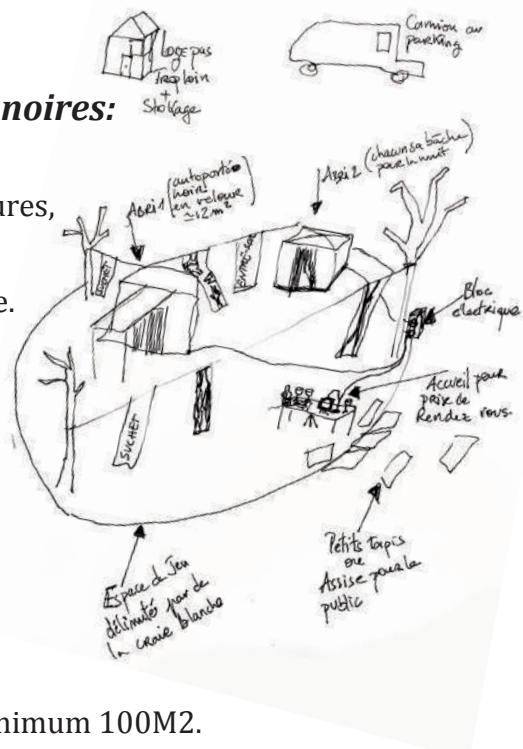 Loge pas
Trop loin
+
Stockage
Camion au
parking
noires:
ures,
e.
Abri 1 (autoportée
noir
en velours
≃12m²)
Abri 2 (chacun sa bâche
pour la nuit)
SUCHET
Bloc
electrique
Accueil pour
prise de
Rendez vous.
SUCHET
Petits tapis
ou
Assise pour le
public
Espace de Jeu
délimité par de
la craie blanche
nimum 100M2.